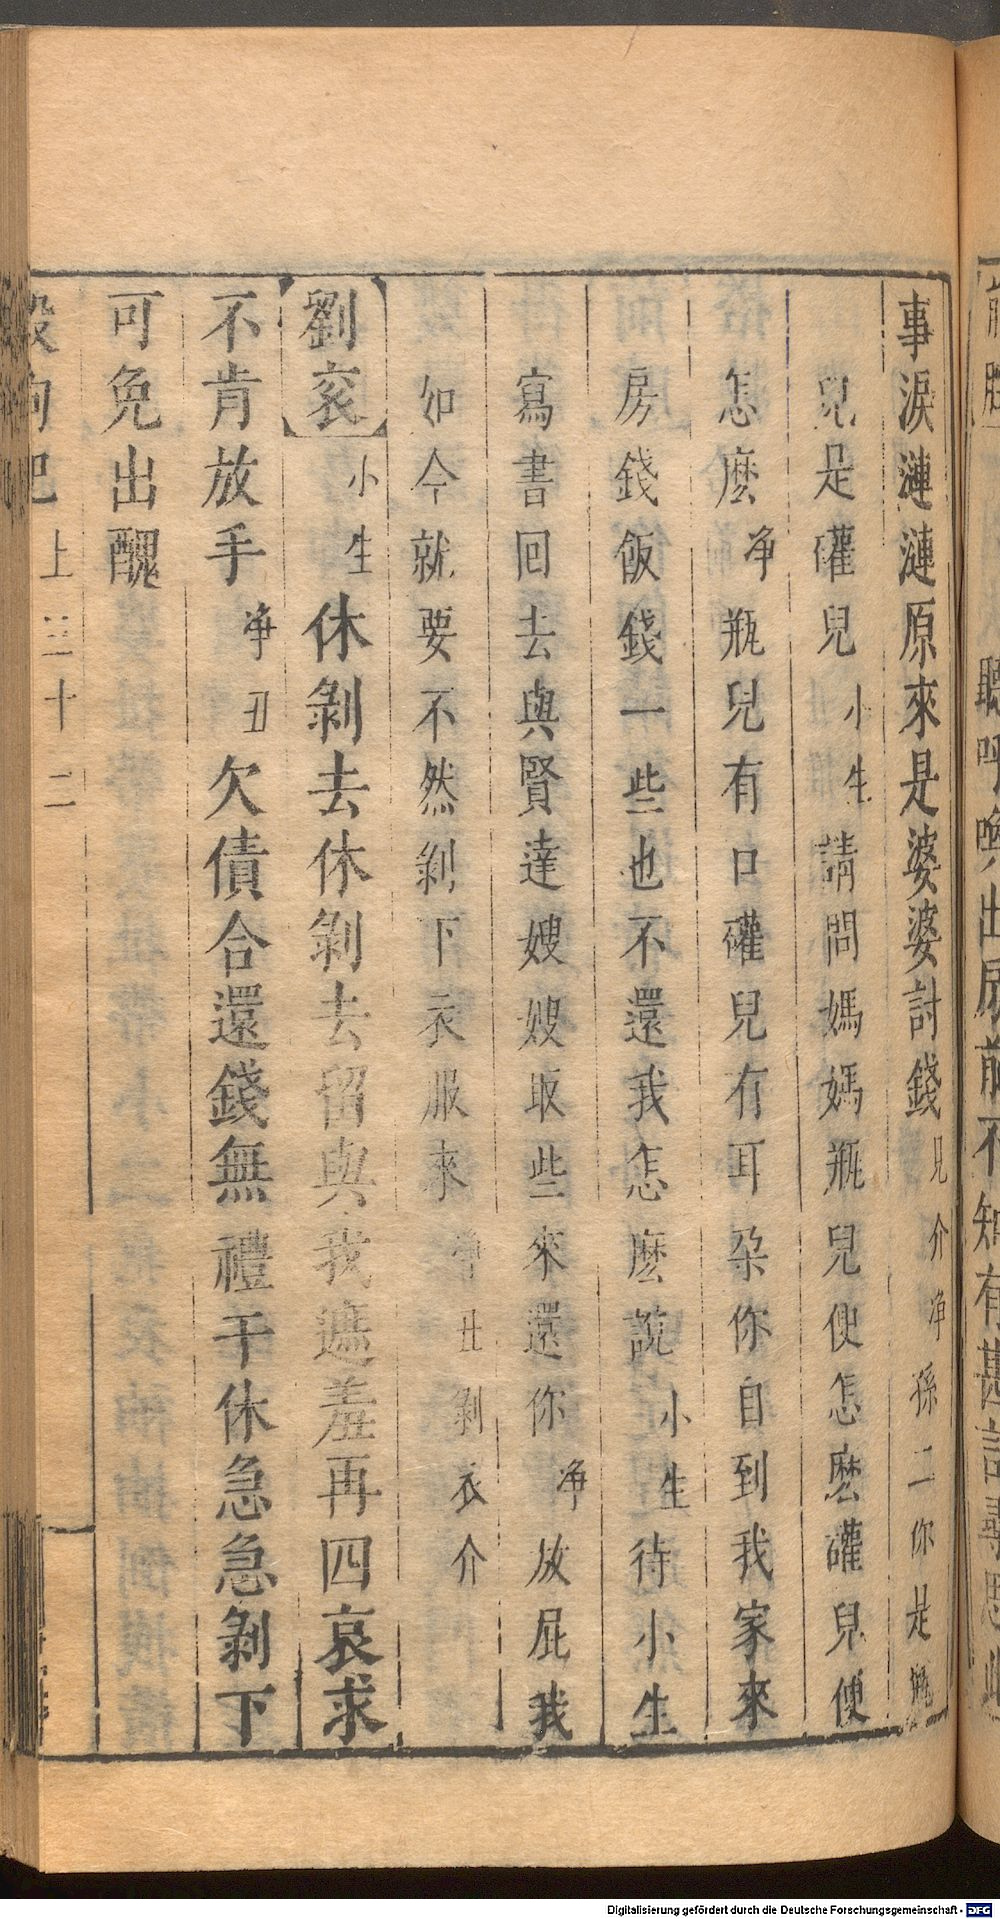 事淚漣漣原來是婆婆討錢見介净孫二你是瓶
兒是礶兒小生請問媽媽瓶兒便怎麽礶兒便
怎麽净瓶兒有口礶兒有耳朶你自到我家來
房錢飯錢一些也不還我怎麽說小生待小生
寫書回去與賢達嫂嫂取些來還你净放屁我
如今就要不然剝下衣服來净丑剝衣介
劉衮小生休剝去休剝去留與我遮羞再四哀求
不肯放手净丑欠債合還錢無禮干休急急剝下
可免出醜
上 三十二
Digitalisierung gefördert durch die Deutsche Forschungsgemeinschaft - DFG